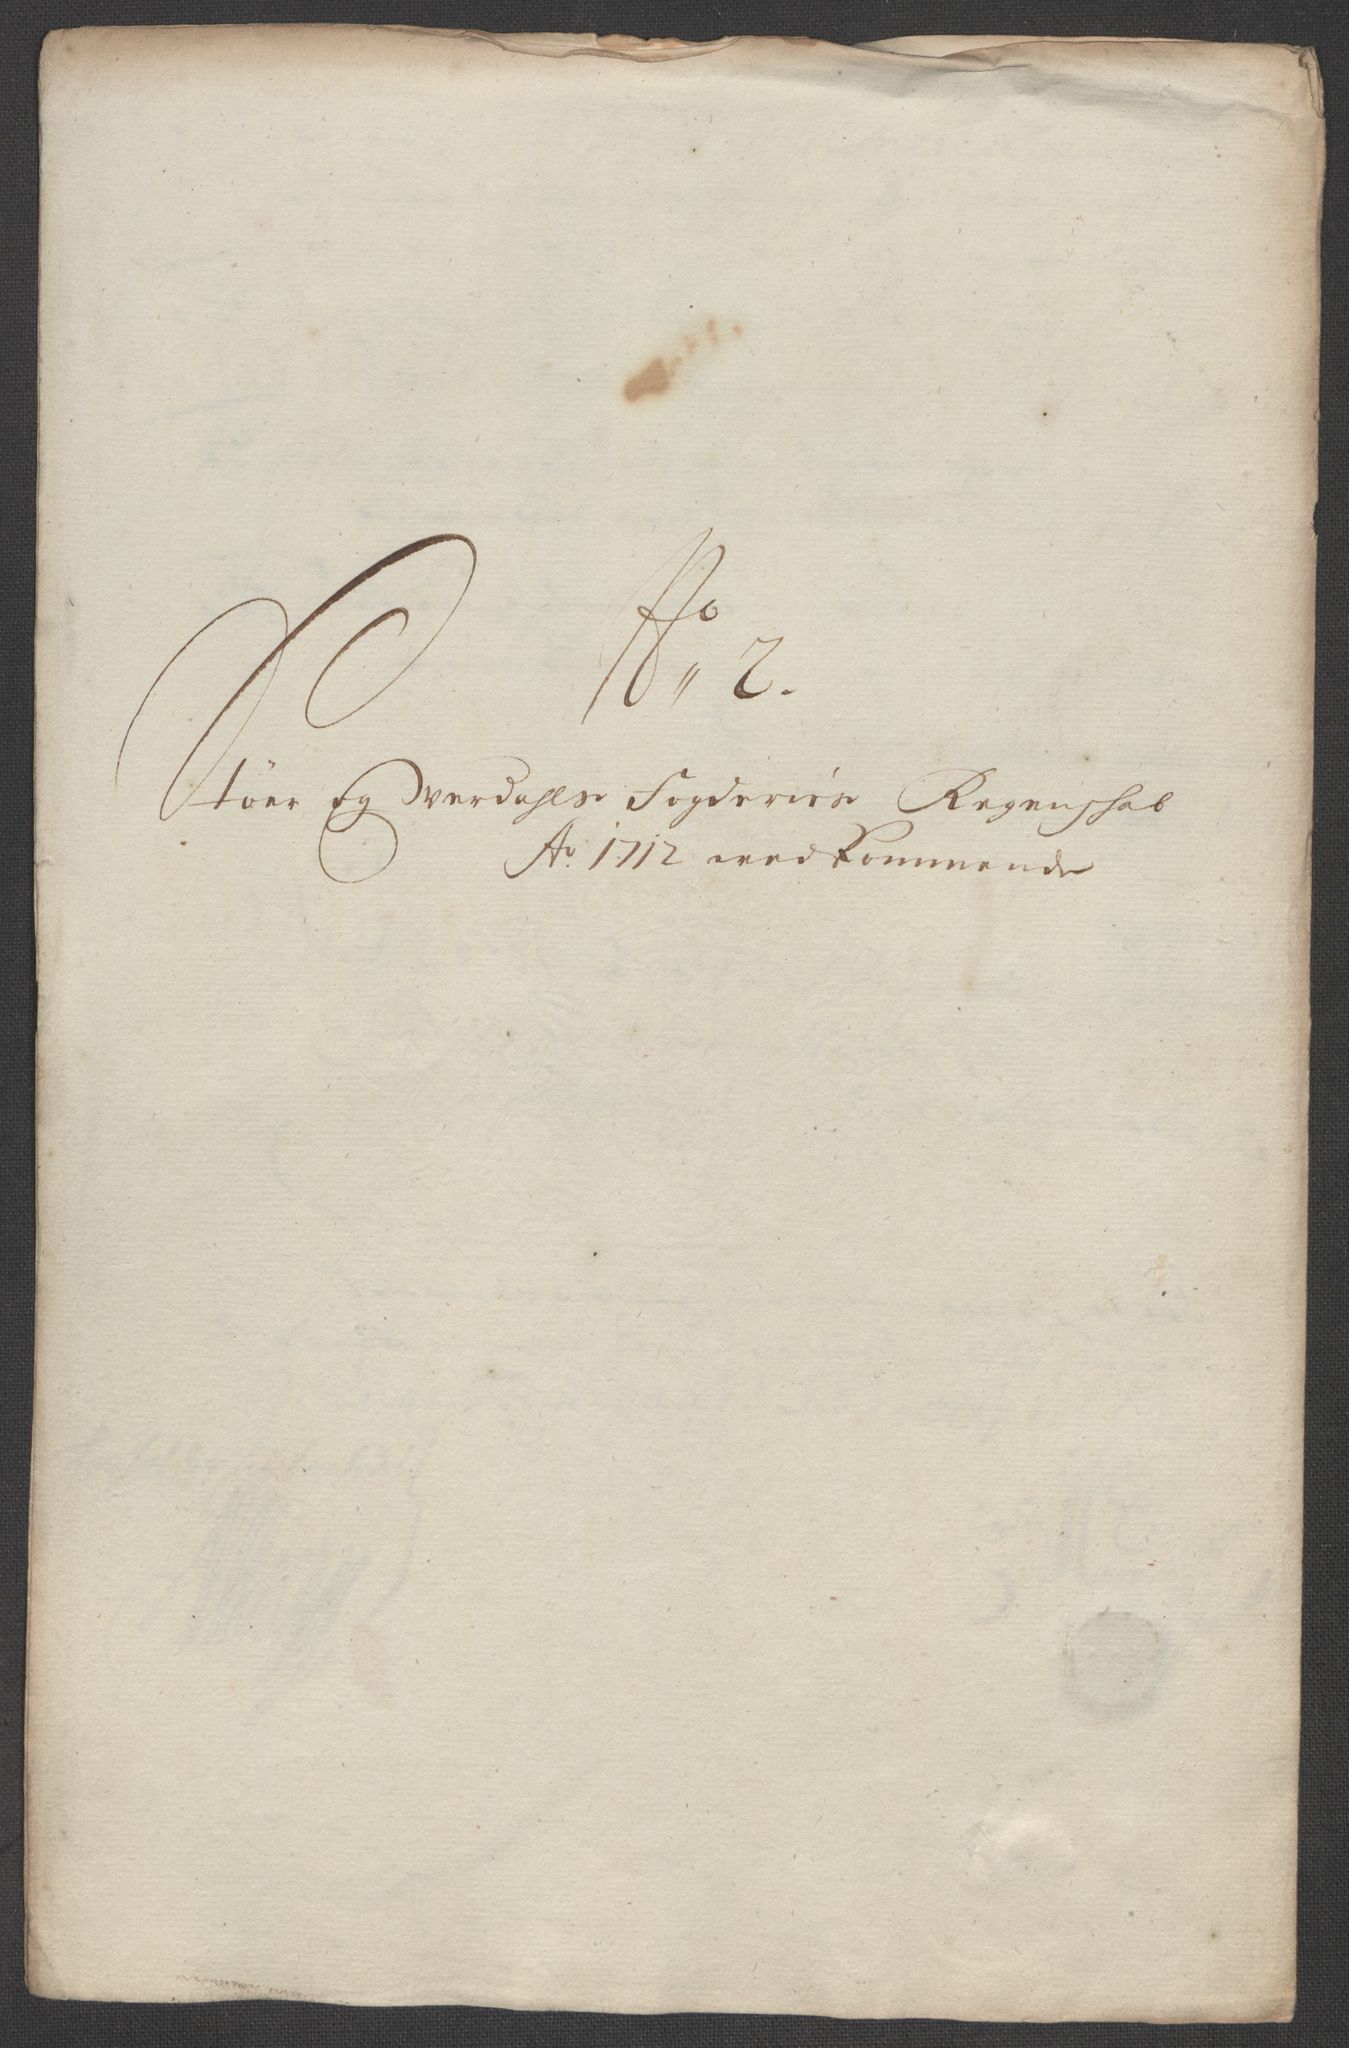 No 2.
Stöer og Werdahls Fogderies Regenschab
Ao. 1712 vedkommende